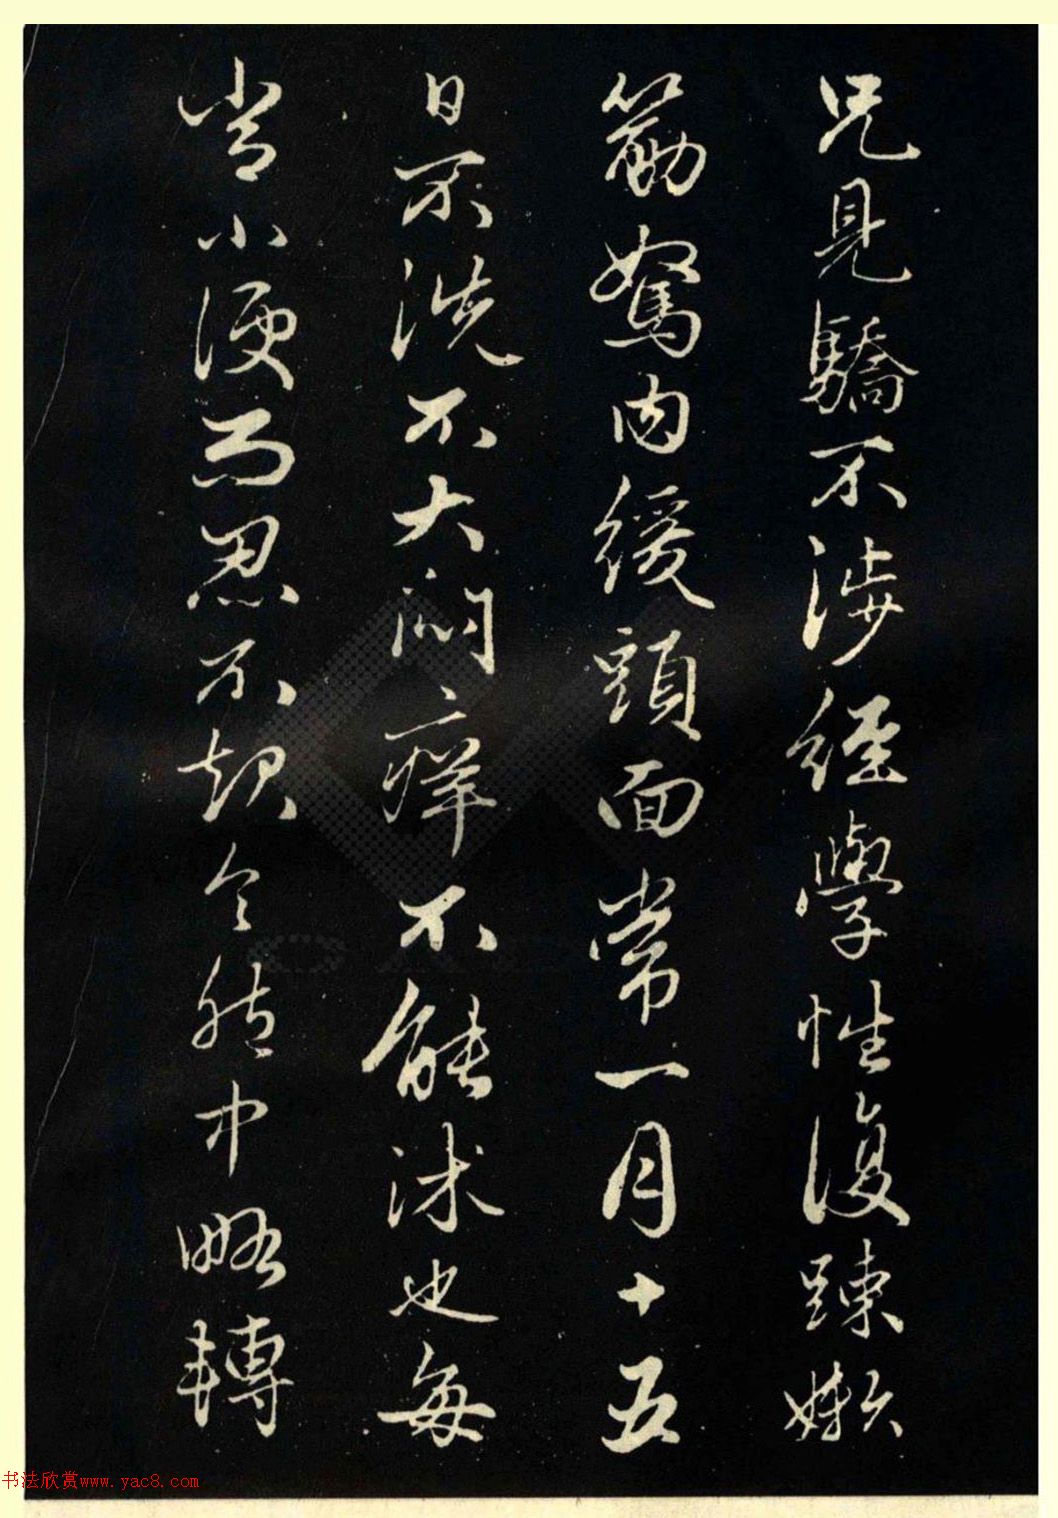 兄見驕不涉經學性復踈嬾
筋駑肉緩頭面常一月十五
日不洗不大悶癢不能沐也每
當小便而忍不起令胞中略轉
书法欣赏www.yac8.com